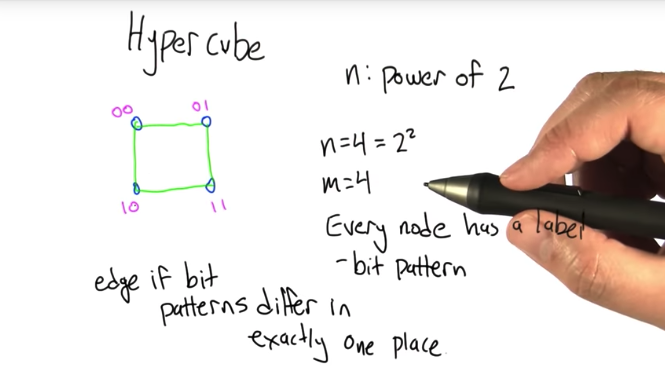 Hypercube
n: power of 2
00 01
10 11
n=4=2²
m=4
Every node has a label
-bit pattern
edge if bit
patterns differ in
exactly one place.